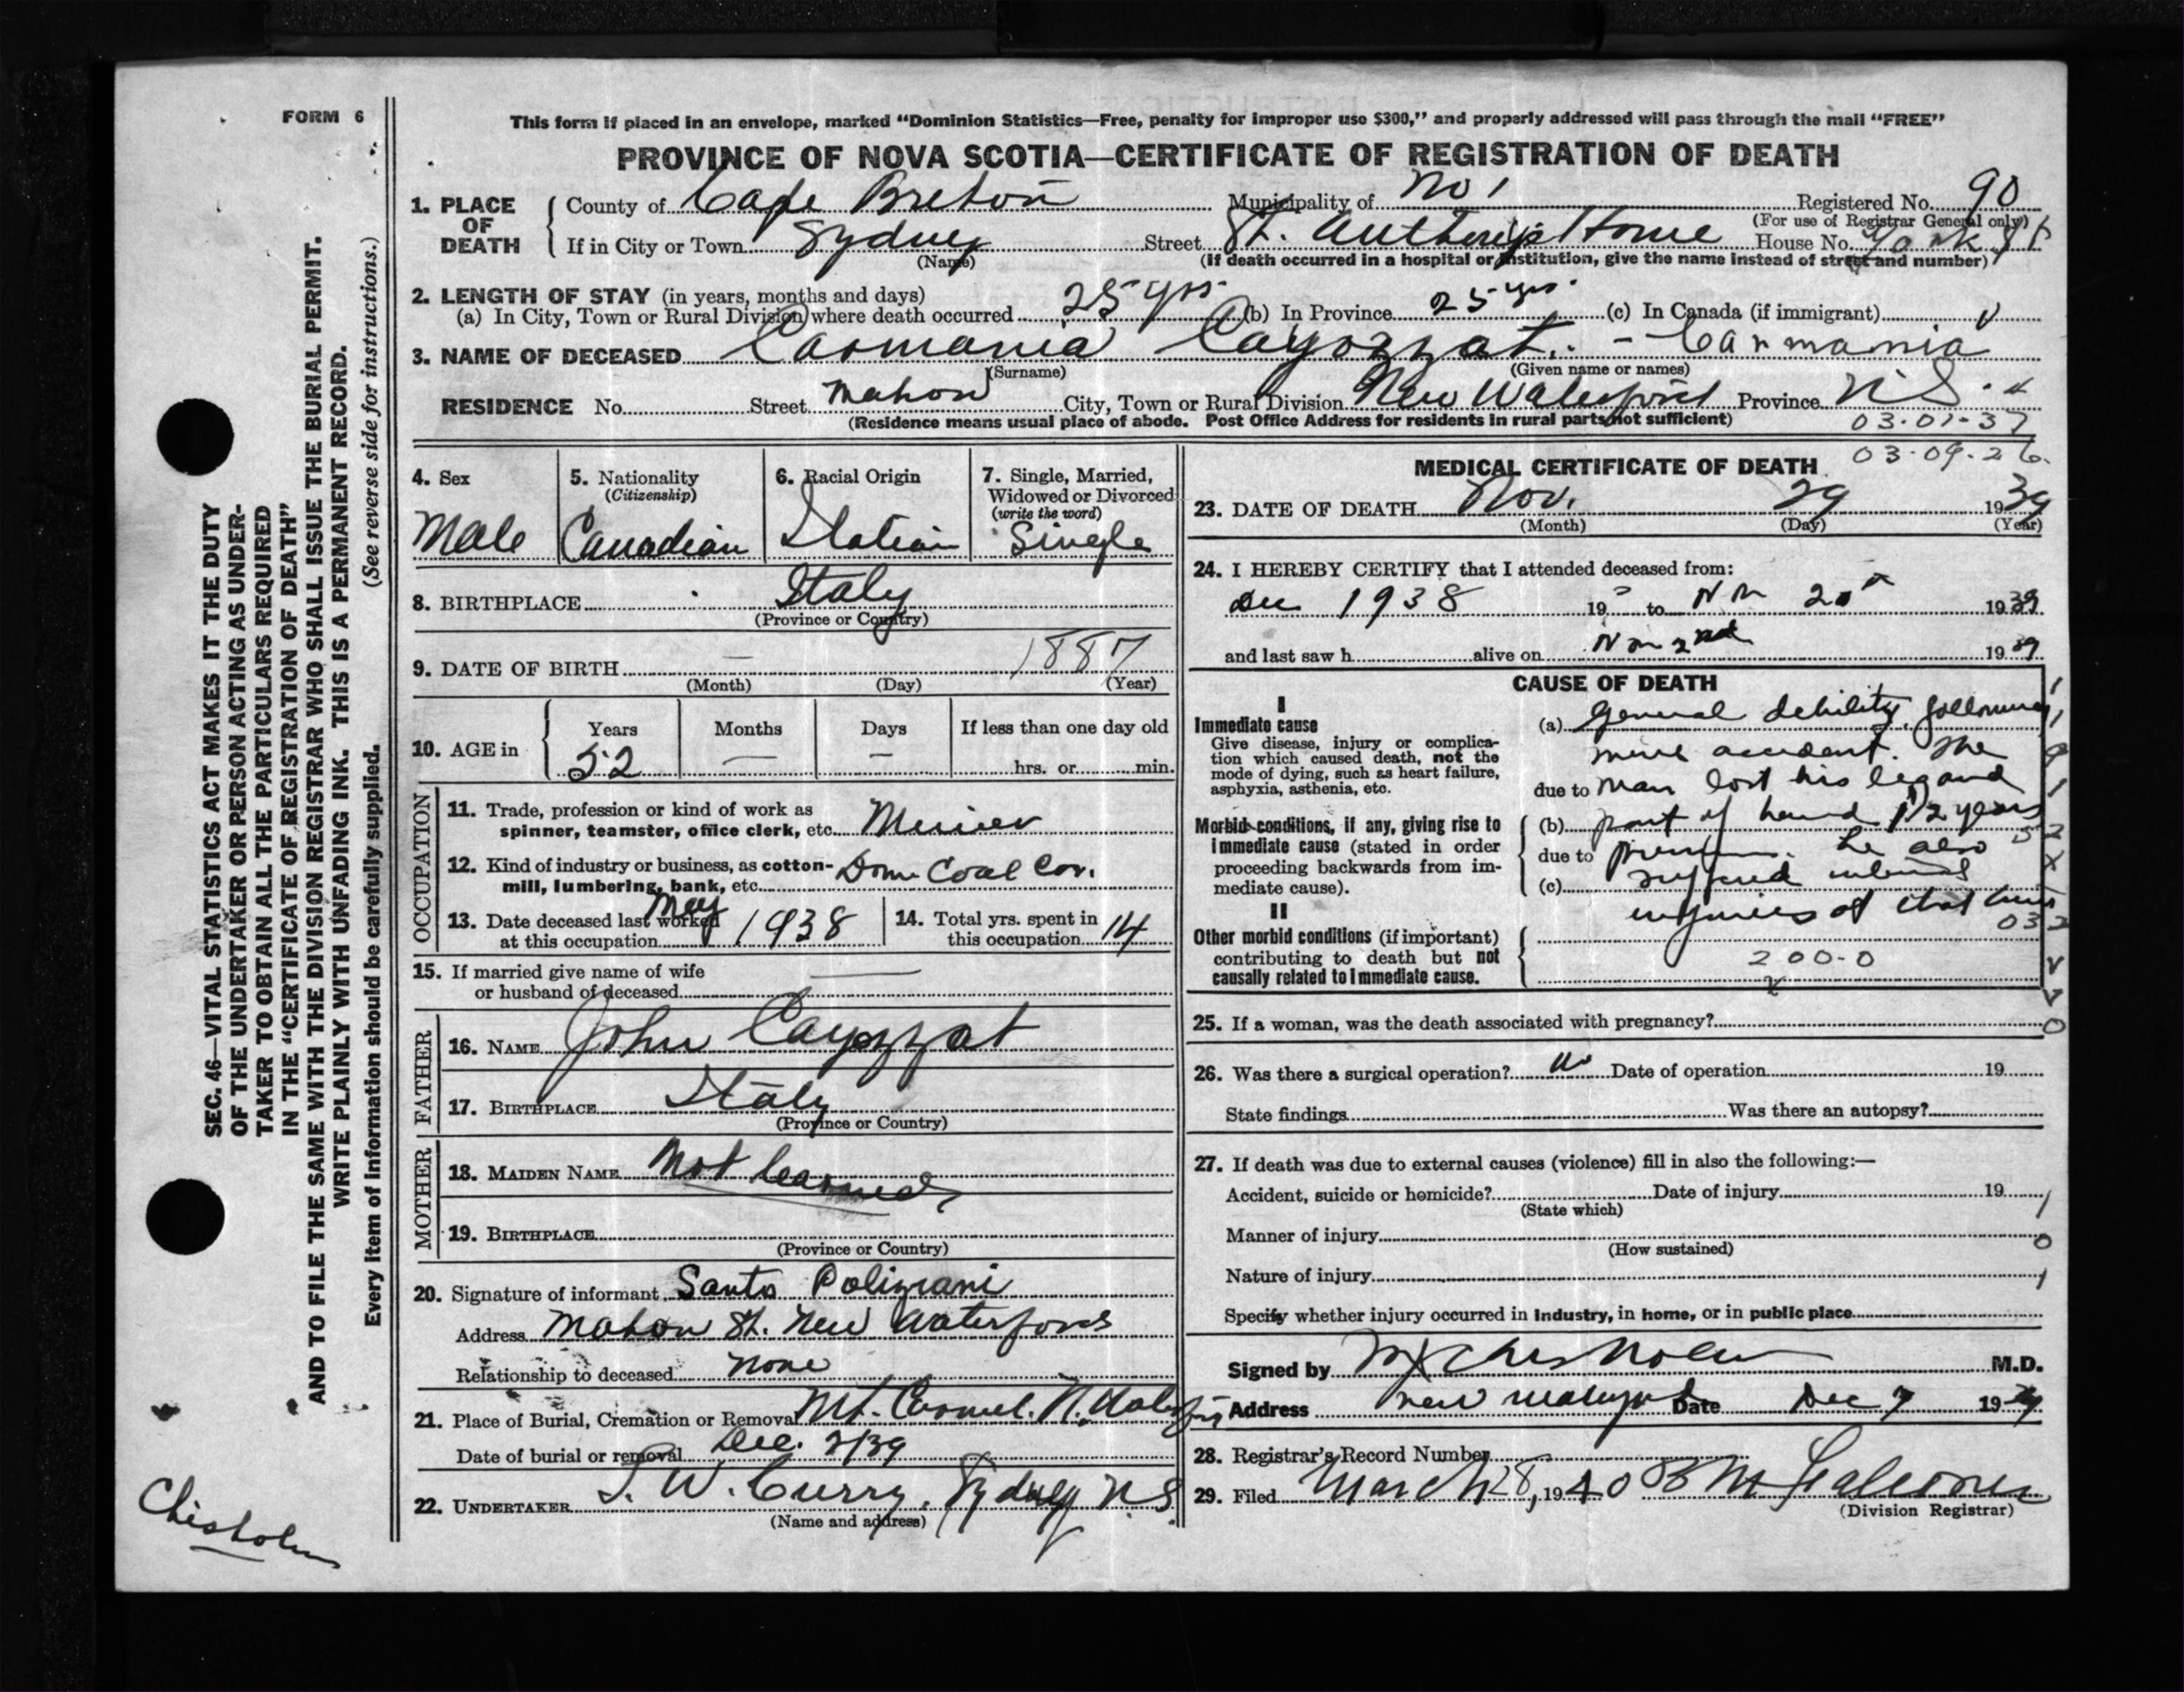 FORM 6
This form if placed in an envelope, marked “Dominion Statistics—Free, penalty for improper use $300,” and properly addressed will pass through the mail “FREE”
PROVINCE OF NOVA SCOTIA—CERTIFICATE OF REGISTRATION OF DEATH
1. PLACE OF DEATH County of Cape Breton Municipality of No 1 Registered No. 90
(For use of Registrar General only)
If in City or Town Sydney Street St. Anthony's Home House No. York St
(Name) (If death occurred in a hospital or institution, give the name instead of street and number)
2. LENGTH OF STAY (in years, months and days)
(a) In City, Town or Rural Division where death occurred 25 yrs. (b) In Province 25 yrs. (c) In Canada (if immigrant) v
3. NAME OF DECEASED Carmania Cayozzat. - Carmania
(Surname) (Given name or names)
RESIDENCE No. Street Mahon City, Town or Rural Division New Waterford Province N.S.
(Residence means usual place of abode. Post Office Address for residents in rural parts not sufficient)
03.01-37
03.09.26.
4. Sex Male
5. Nationality (Citizenship) Canadian
6. Racial Origin Italian
7. Single, Married, Widowed or Divorced (write the word) Single
8. BIRTHPLACE Italy
(Province or Country)
9. DATE OF BIRTH — 1887
(Month) (Day) (Year)
10. AGE in Years 52 Months — Days — If less than one day old hrs. or min.
OCCUPATION
11. Trade, profession or kind of work as spinner, teamster, office clerk, etc. Miner
12. Kind of industry or business, as cotton-mill, lumbering, bank, etc. Dom Coal Co.
13. Date deceased last worked at this occupation May 1938
14. Total yrs. spent in this occupation 14
15. If married give name of wife or husband of deceased —
FATHER
16. NAME John Cayozzat
17. BIRTHPLACE Italy
(Province or Country)
MOTHER
18. MAIDEN NAME Not learned
19. BIRTHPLACE
(Province or Country)
20. Signature of informant Santo
Address Mahon St. New Waterford
Relationship to deceased None
21. Place of Burial, Cremation or Removal Mt. Carmel. N.
Date of burial or removal Dec. 2/39
22. UNDERTAKER W. Curry, Sydney N.S.
(Name and address)
MEDICAL CERTIFICATE OF DEATH
23. DATE OF DEATH Nov. 29 1939
(Month) (Day) (Year)
24. I HEREBY CERTIFY that I attended deceased from:
Dec 1938 19 to Nov 20th 1939
and last saw h alive on Nov 2nd 1939
CAUSE OF DEATH
I
Immediate cause
Give disease, injury or complication which caused death, not the mode of dying, such as heart failure, asphyxia, asthenia, etc.
(a) General debility following
mine accident. The
due to man lost his leg and
Morbid conditions, if any, giving rise to immediate cause (stated in order proceeding backwards from immediate cause).
(b) part of hand 1 1/2 years
due to previous. He also
(c) suffered internal
injuries at that time
II
Other morbid conditions (if important) contributing to death but not causally related to immediate cause.
200-0
25. If a woman, was the death associated with pregnancy?
26. Was there a surgical operation? no Date of operation 19
State findings Was there an autopsy?
27. If death was due to external causes (violence) fill in also the following:—
Accident, suicide or homicide? Date of injury 19
(State which)
Manner of injury
(How sustained)
Nature of injury
Specify whether injury occurred in industry, in home, or in public place
Signed by Chisholm M.D.
Address New Waterford Date Dec 7 19
28. Registrar's Record Number
29. Filed March 28, 1940
(Division Registrar)
SEC. 46—VITAL STATISTICS ACT MAKES IT THE DUTY
OF THE UNDERTAKER OR PERSON ACTING AS UNDER-
TAKER TO OBTAIN ALL THE PARTICULARS REQUIRED
IN THE “CERTIFICATE OF REGISTRATION OF DEATH”
AND TO FILE THE SAME WITH THE DIVISION REGISTRAR WHO SHALL ISSUE THE BURIAL PERMIT.
WRITE PLAINLY WITH UNFADING INK. THIS IS A PERMANENT RECORD.
Every item of information should be carefully supplied. (See reverse side for instructions.)
Chisholm